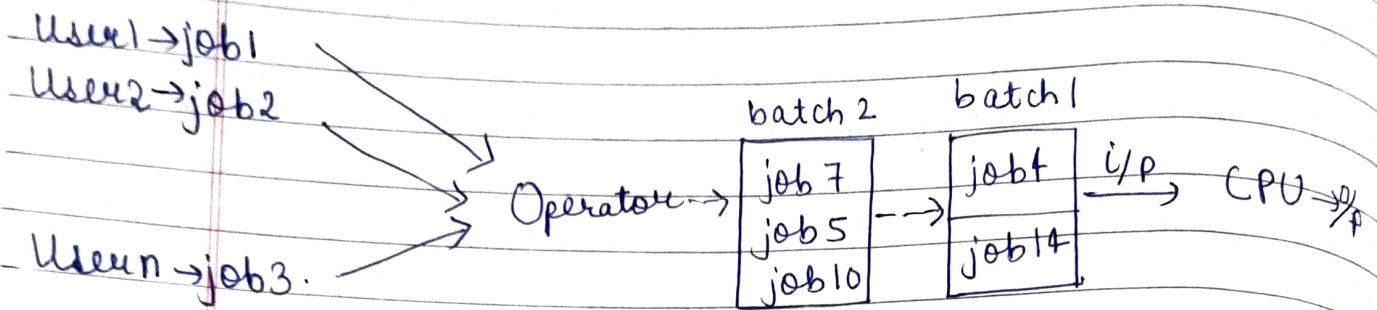 User1→job1
User2→job2
Usern→job3.
Operator
batch 2
job 7
job 5
job 10
batch 1
job4
job14
i/p
CPU→o/p